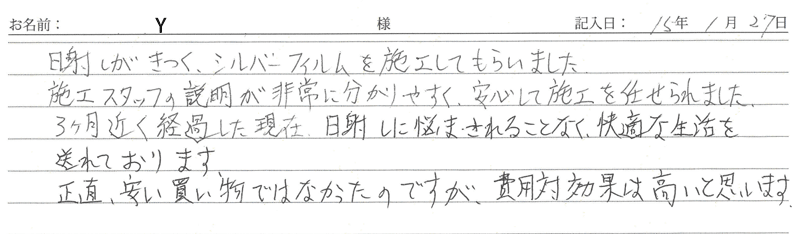 お名前： Y 様 記入日： 15年 1月 27日
日射しがきつく、シルバーフィルムを施工してもらいました。
施工スタッフの説明が非常に分かりやすく、安心して施工を任せられました。
3ヶ月近く経過した現在、日射しに悩まされることなく、快適な生活を
送れております。
正直、安い買い物ではなかったのですが、費用対効果は高いと思います。